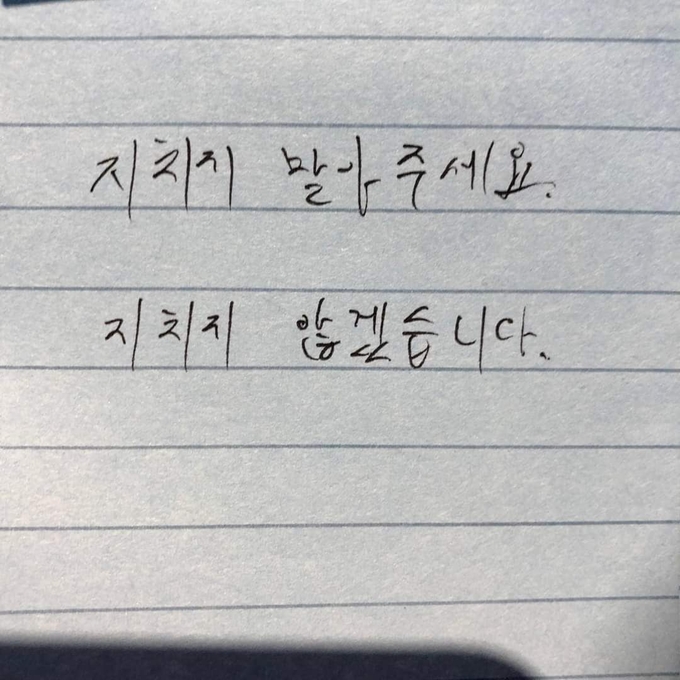 지치지 말아주세요.
지치지 않겠습니다.